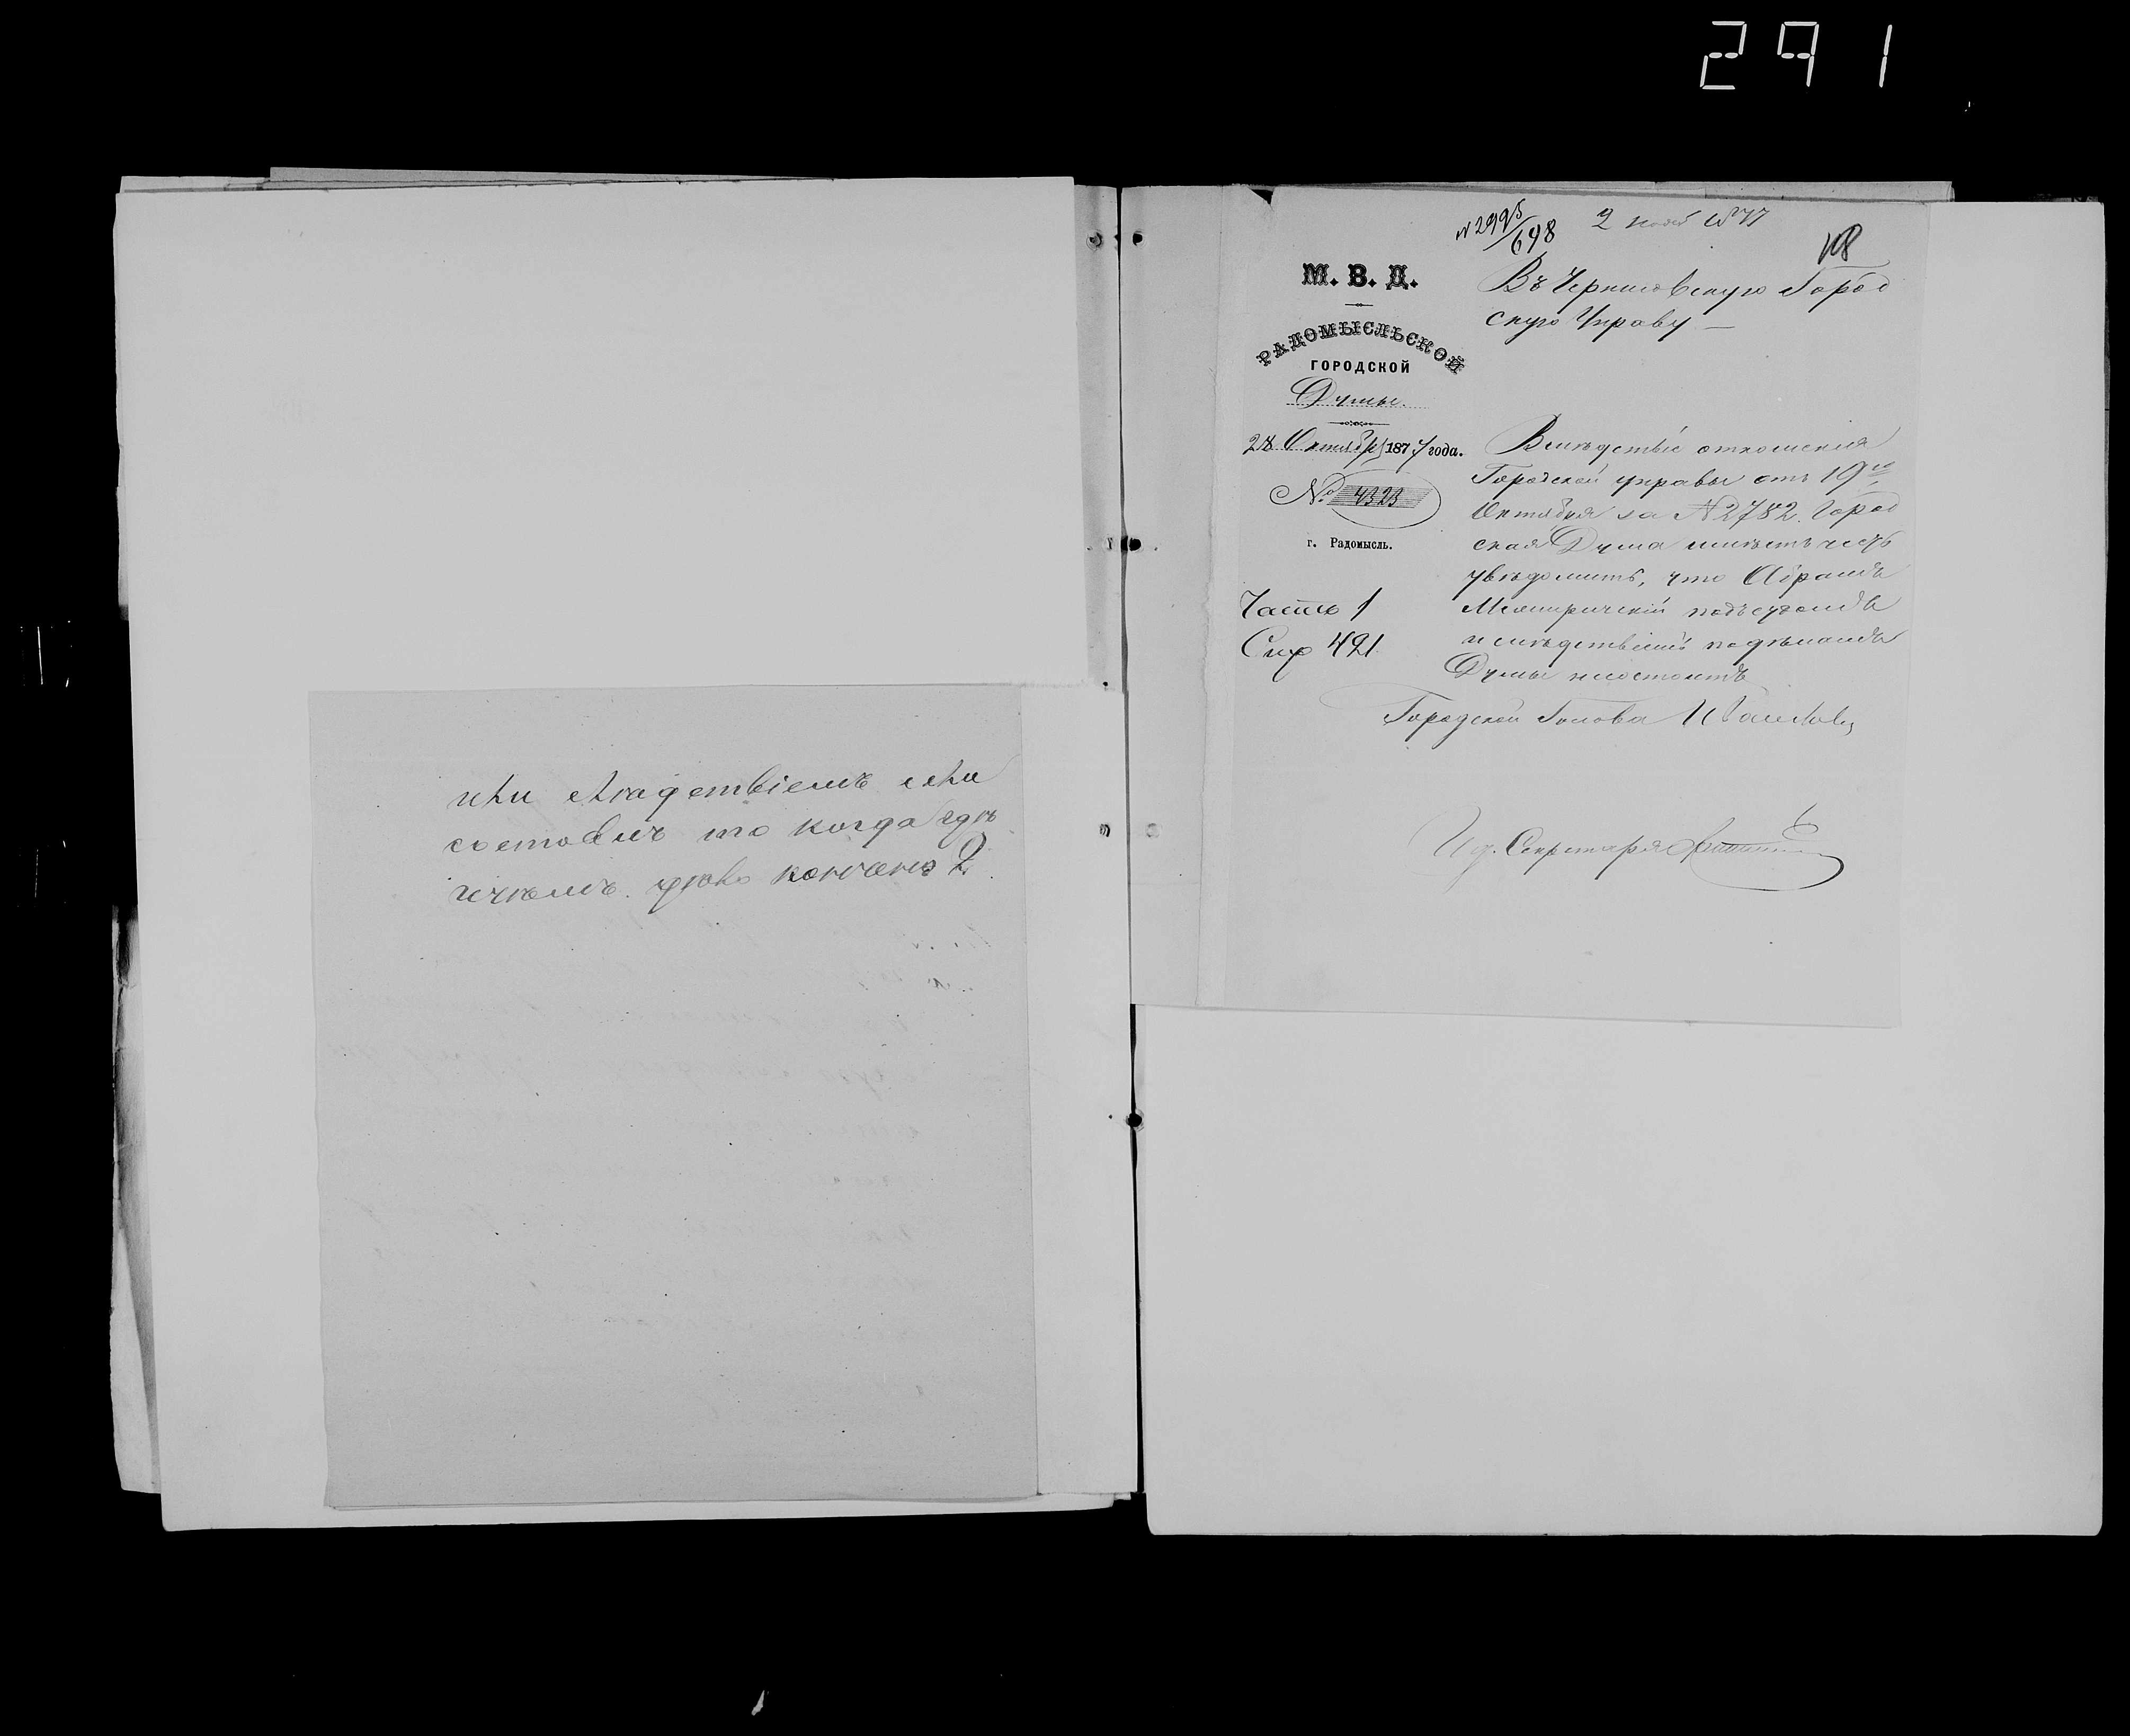 291
или следствiемъ или
состоялъ то когда гдѣ
и чѣмъ дѣло кончено?
№ 2995/698 2 нояб 1877
М. В. Д.
РАДОМЫСЛЬСКОЙ
ГОРОДСКОЙ
Думы.
28 Октября 1877 года.
№ 4323
г. Радомысль.
Часть 1
Въ Черниговскую Город
скую Управу —
Вслѣдствiе отношенiя
Городской управы отъ 19го
Октября за № 2782. Город
ская Дума имѣетъ честь
увѣдомить, что Абрамъ
подъ судомъ
и слѣдствiемъ по дѣламъ
Думы несостоитъ
Городской Голова
Ид. Секретаря